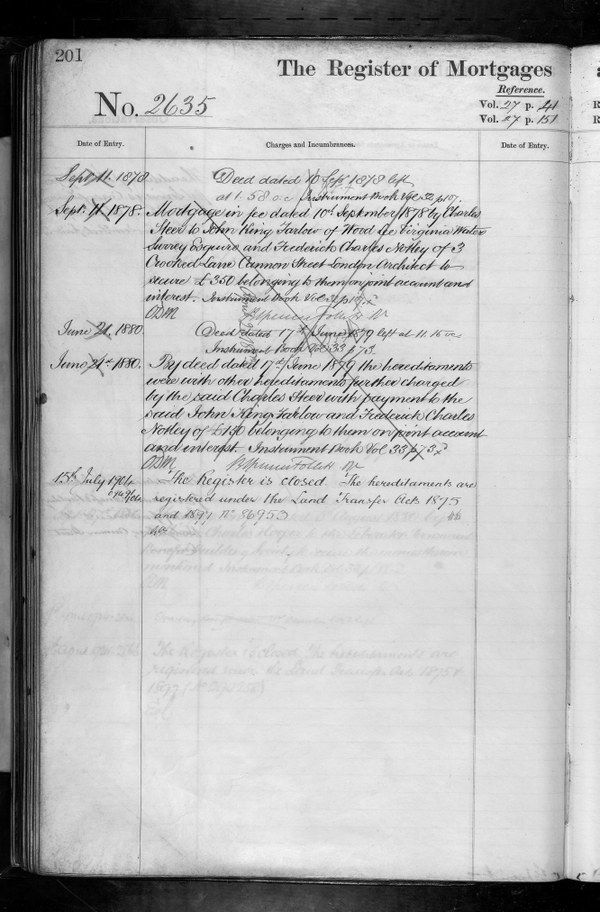 201
The Register of Mortgages
Reference.
No. 2635
Vol. 27 p. 41
Vol. 27 p. 151
Date of Entry.
Charges and Incumbrances.
Date of Entry.
Sept. 11. 1878
Deed dated 10 Sept. 1878 left
at 1.58 o.c Instrument Book Vol 32 p 107.
Sept. 11. 1878.
Mortgage in fee dated 10th September 1878 by Charles
Steer to John King Farlow of Wood Lee Virginia Water
Surrey Esquire and Frederick Charles Notley of 3
Crooked Lane Cannon Street London Architect to
secure £350 belonging to them on joint account and
interest. Instrument Book Vol
June 21. 1880
Deed dated 17th June 1879 left at 11.15 o.c
Instrument Book Vol 33 p 73.
June 21st 1880.
By deed dated 17th June 1879 the hereditaments
were with other hereditaments further charged
by the said Charles Steer with payment to the
said John King Farlow and Frederick Charles
Notley of £150 belonging to them on joint account
and interest. Instrument Book Vol 33 p 73.
15th July 1904
The Register is closed. The hereditaments are
registered under the Land Transfer Acts 1875
and 1897 No 86953